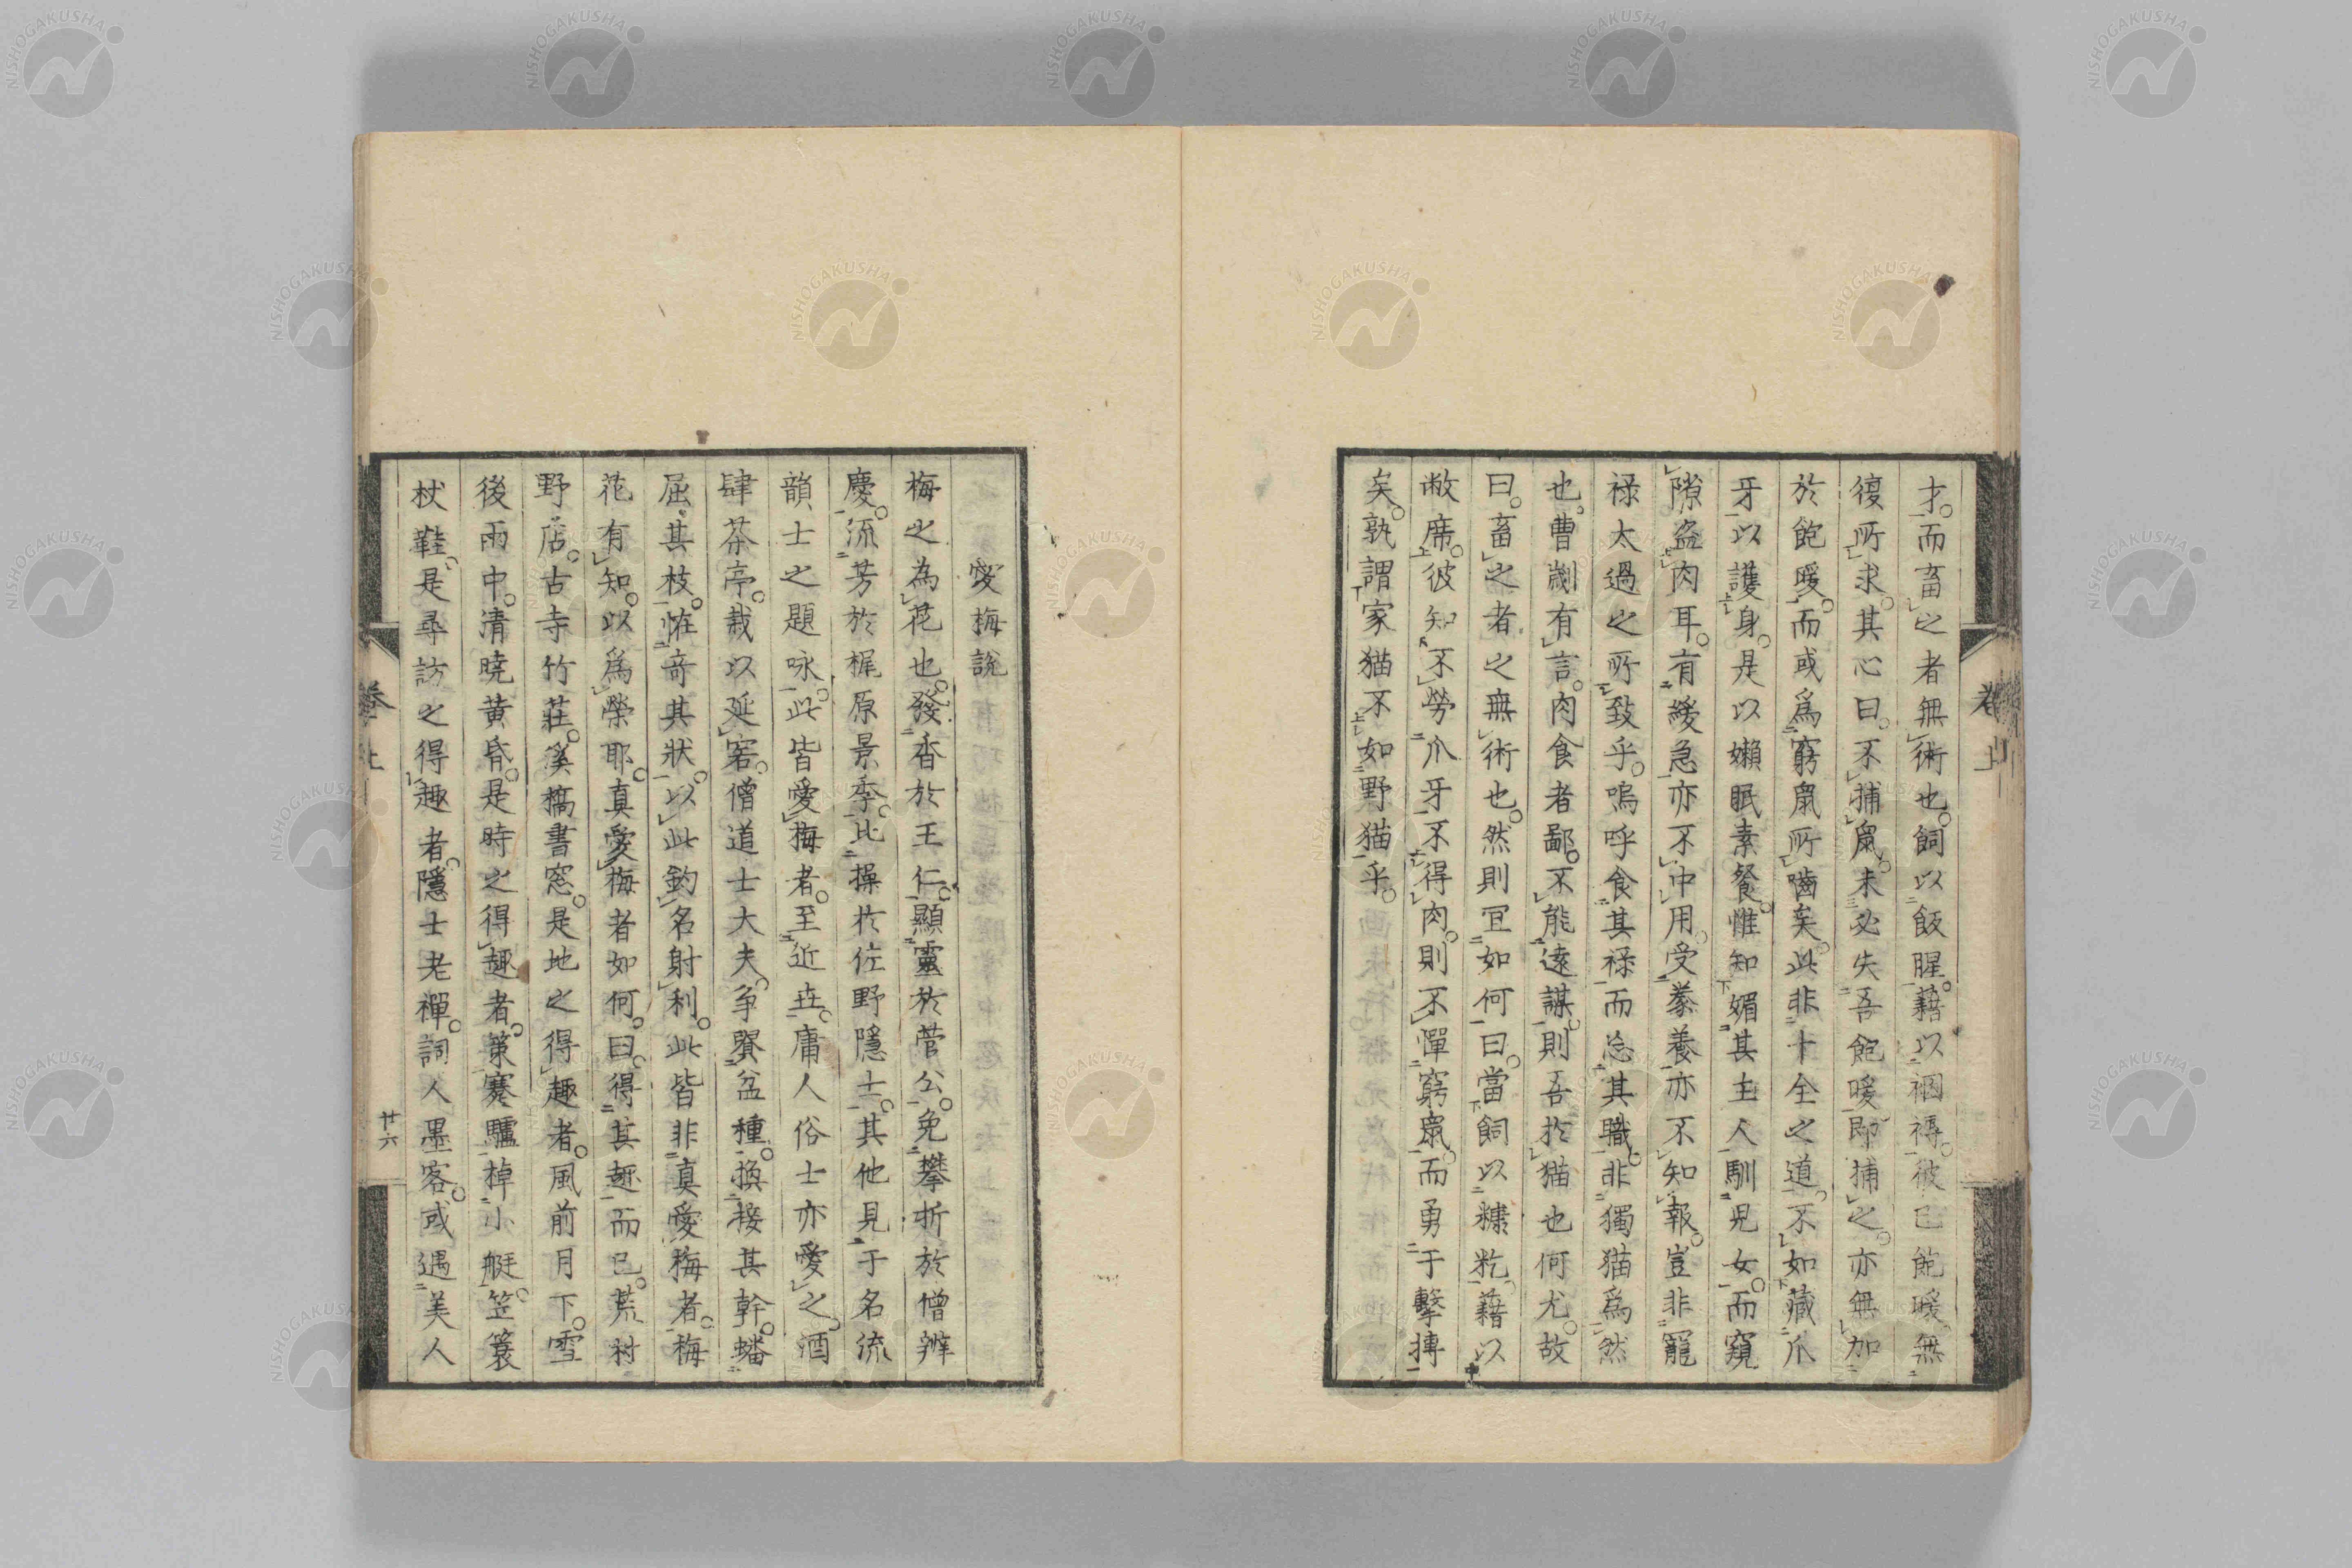 才。而畜之者無術也。飼以飯腥。藉以裀褥。彼已飽暖無
復所求。其心曰。不捕鼠。未必失吾飽暖。即捕之。亦無加
於飽暖。而或爲窮鼠所嚙矣。此非十全之道。不如藏爪
牙以護身。是以嬾眠素餐。惟知媚其主人馴兒女。而窺
隙盜肉耳。有緩急亦不中用。受豢養亦不知報。豈非寵
祿太過之所致乎。嗚呼食其祿而怠其職。非獨猫爲然
也。曹劌有言。肉食者鄙。不能遠謀。則吾於猫也何尤。故
曰。畜之者之無術也。然則冝如何。曰。當飼以糠籺。藉以
敝席。彼知不勞爪牙不得肉。則不憚窮鼠。而勇于擊摶
矣。孰謂家猫不如野猫乎。
愛梅說
梅之為花也。發香於王仁。顯靈於菅公。免攀折於僧辨
慶。流芳於梶原景季。比操於佐野隱士。其他見于名流
韻士之題咏。此皆愛梅者。至近世。庸人俗士亦愛之。酒
肆茶亭。栽以延客。僧道士大夫。争買盆種。換接其幹。蟠
屈其枝。恠奇其狀。以此釣名射利。此皆非真愛梅者。梅
花有知。以爲榮耶。真愛梅者如何。曰。得其趣而已。荒村
野店。古寺竹莊。溪橋書窓。是地之得趣者。風前月下。雪
後雨中。清曉黄昏。是時之得趣者。策蹇驢棹小艇。笠簑
杖鞋。是尋訪之得趣者。隱士老禪。詞人墨客。或遇美人
卷上
廿六
卷上
NISHOGAKUSHA